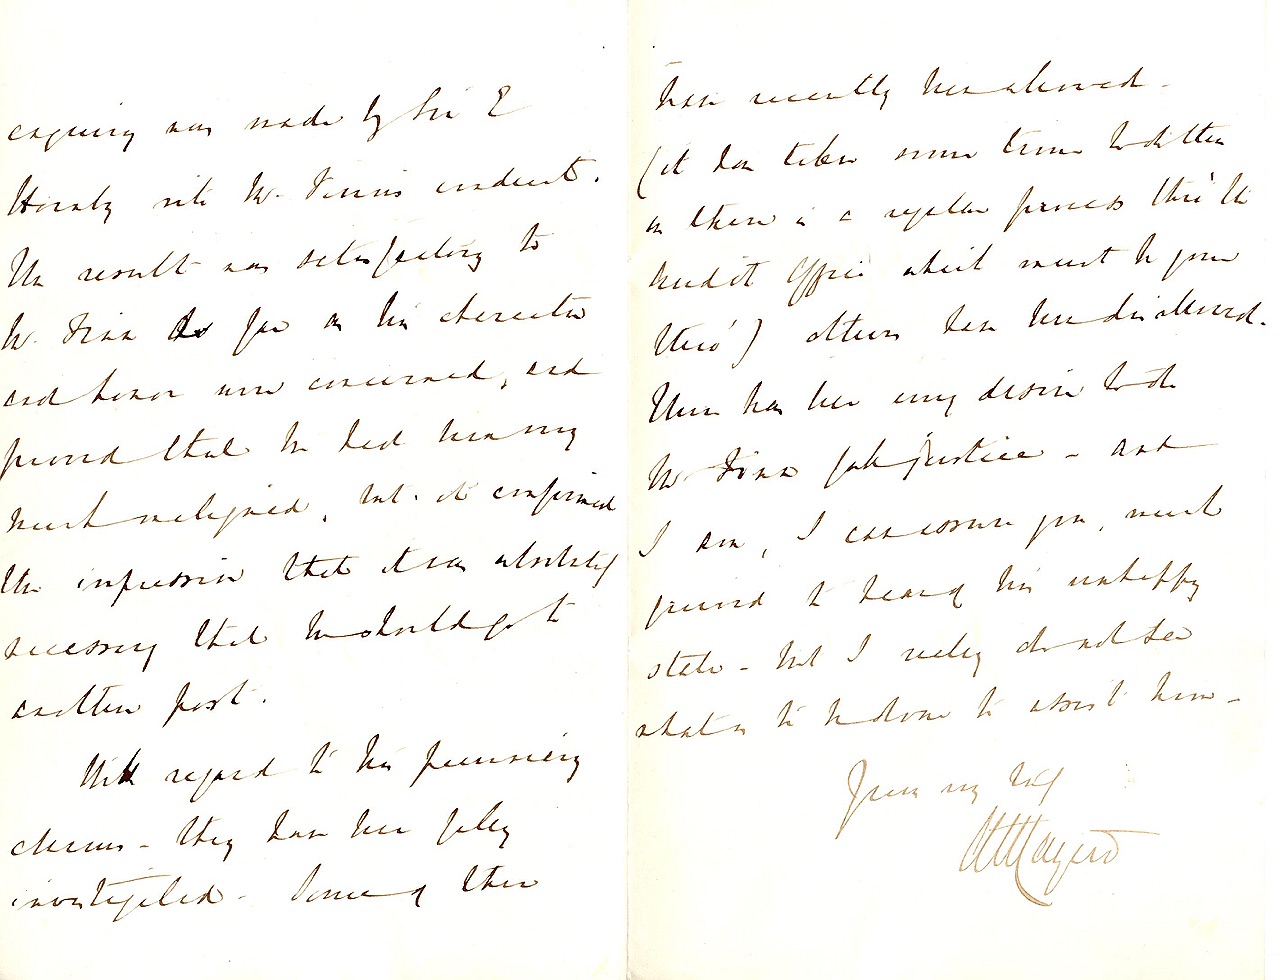 enquiry was made by Sir E
Hornby into Mr. Finn's conduct.
The result was satisfactory to
Mr. Finn so far as his character
and honor were concerned, and
proved that he had been very
much maligned, but it confirmed
the impression that it was absolutely
necessary that he should go to
another post.
With regard to his pecuniary
claims - they have been fully
investigated - Some of them
have recently been allowed -
(it has taken some time to do this
as there is a regular process thro' the
Audit Office which must be gone
thro') others have been disallowed.
There has been every desire to do
Mr Finn full justice - and
I am, I can assure you, much
grieved to hear of his unhappy
state - but I really do not see
what is to be done to assist him -
Yours very truly